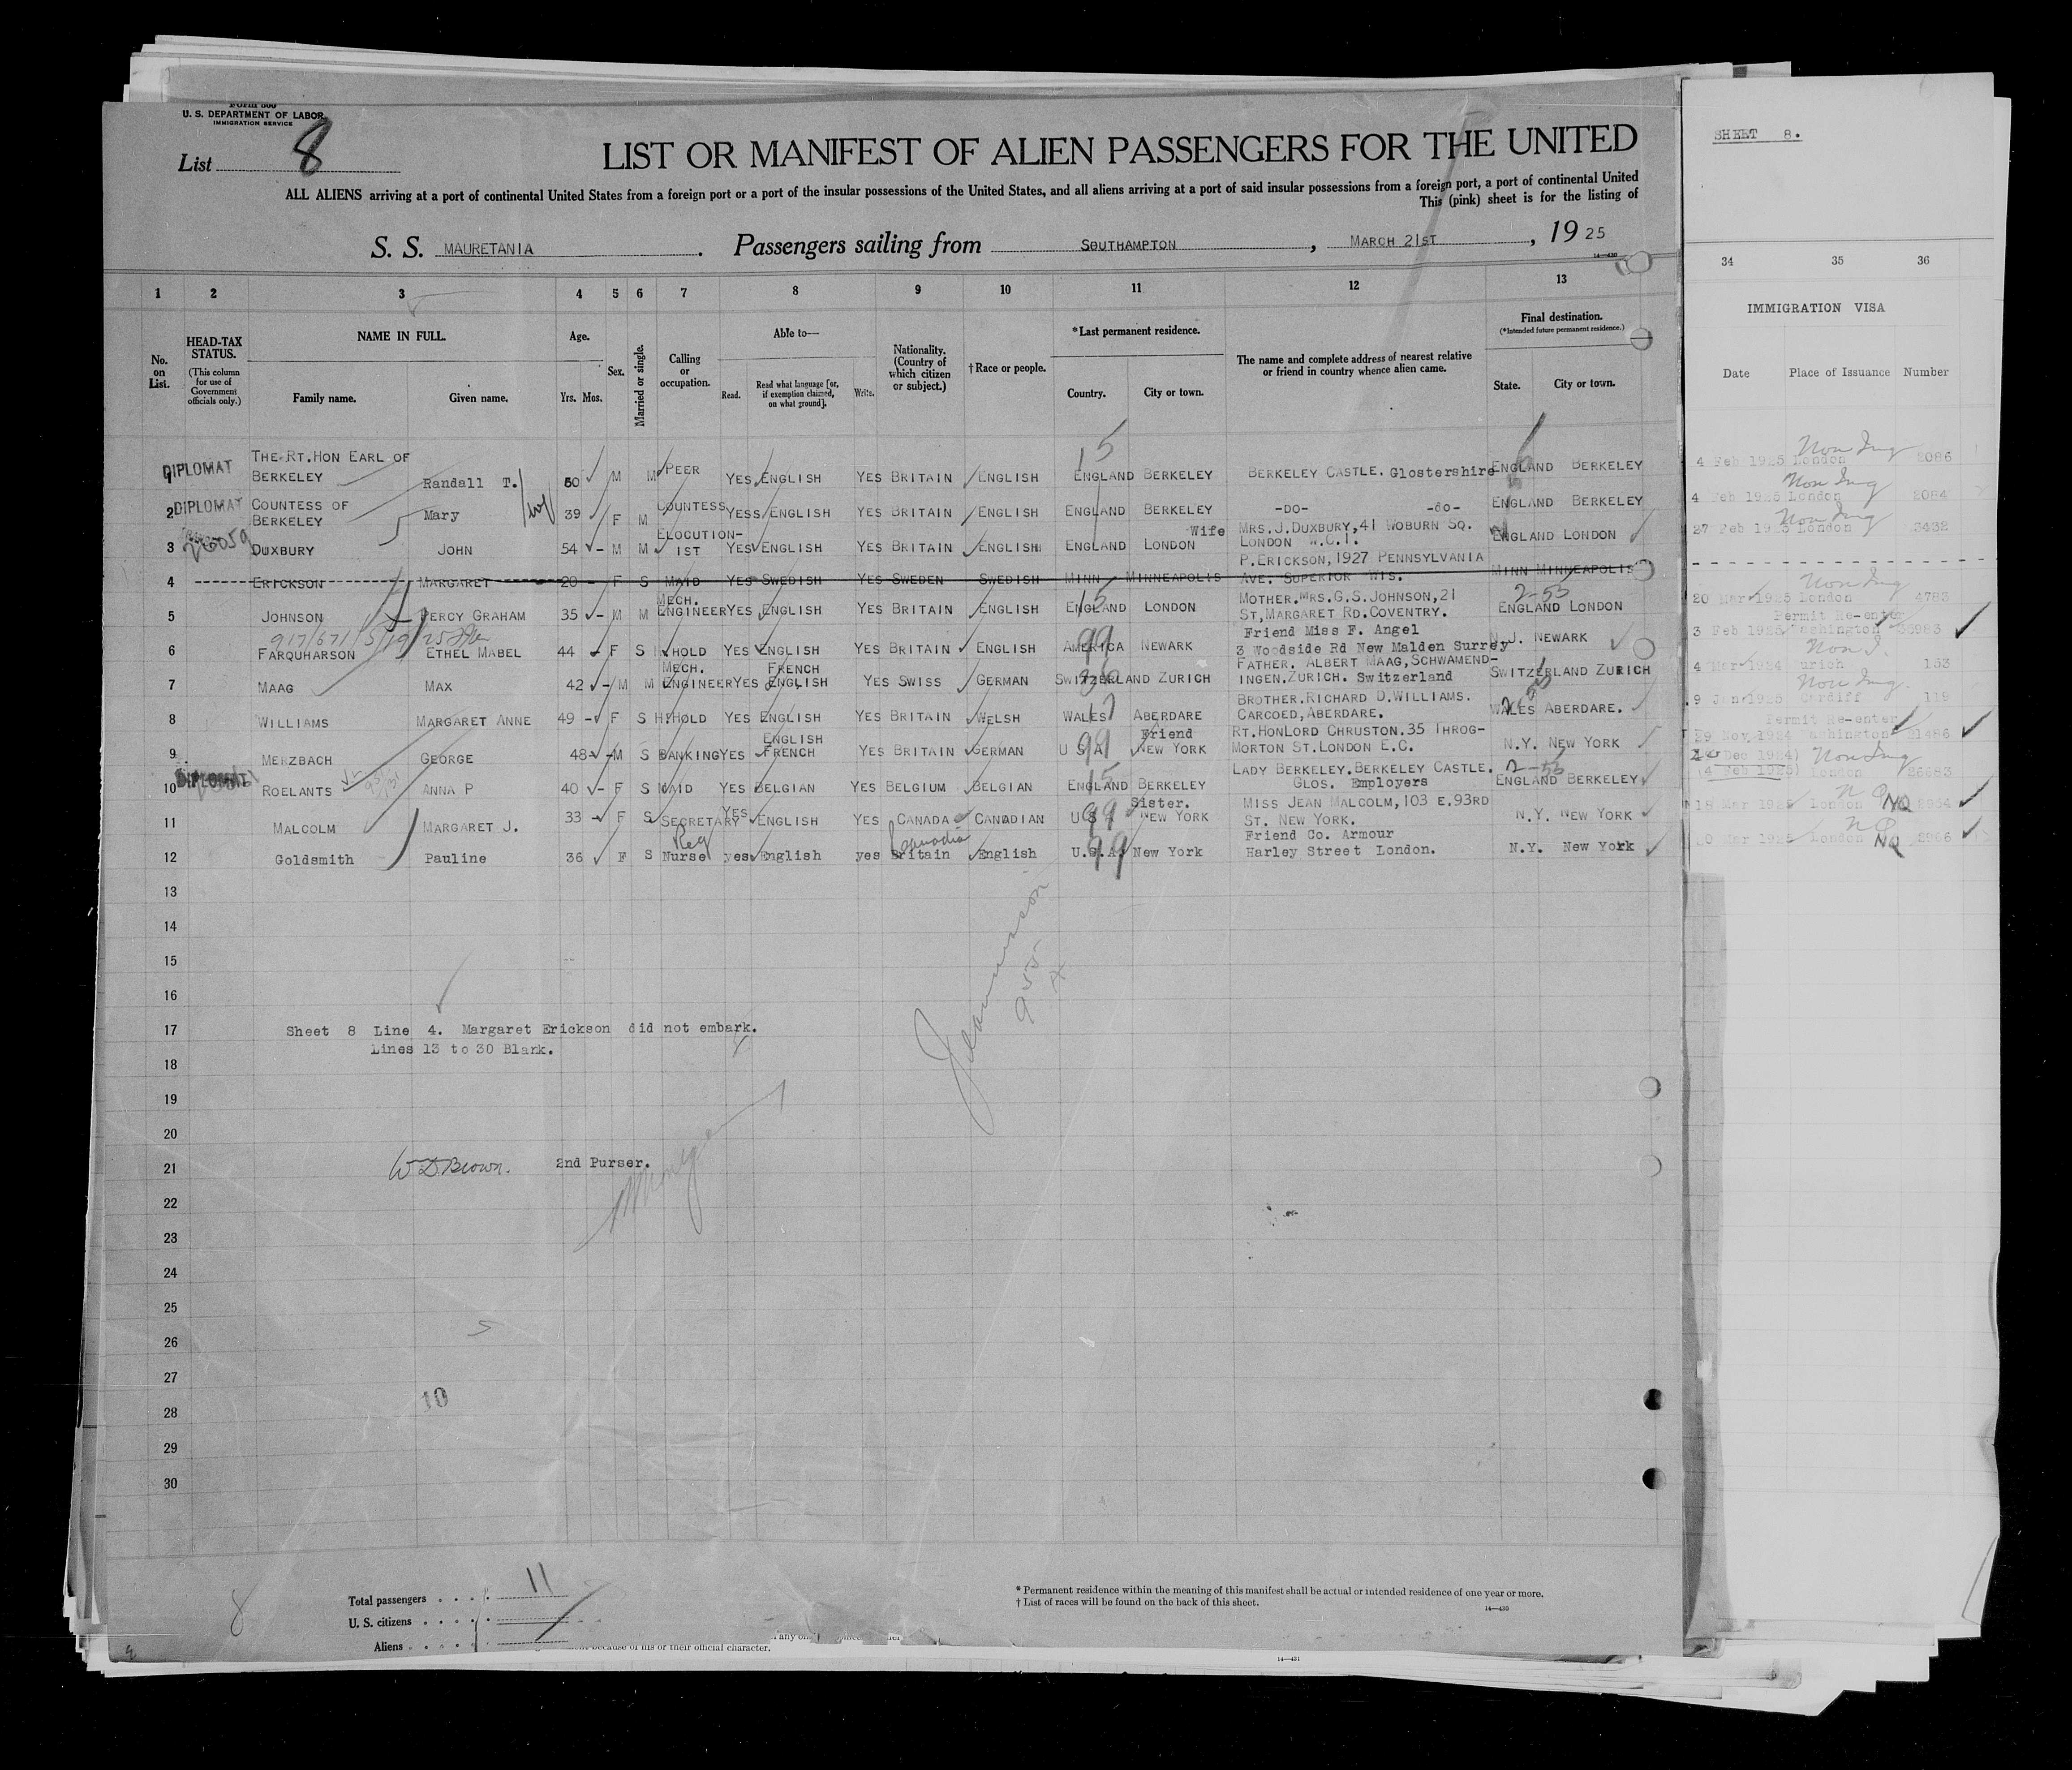 U. S. DEPARTMENT OF LABOR
IMMIGRATION SERVICE
List 8
LIST OR MANIFEST OF ALIEN PASSENGERS FOR THE UNITED
ALL ALIENS arriving at a port of continental United States from a foreign port or a port of the insular possessions of the United States, and all aliens arriving at a port of said insular possessions from a foreign port, a port of continental United
This (pink) sheet is for the listing of
S. S. MAURETANIA. Passengers sailing from SOUTHAMPTON, MARCH 21ST, 1925
SHEET 8.
1 2 3 4 5 6 7 8 9 10 11 12 13
34 35 36
IMMIGRATION VISA
Date Place of Issuance Number
No. on List.
HEAD-TAX STATUS.
(This column for use of Government officials only.)
NAME IN FULL.
Family name. Given name.
Age.
Yrs. Mos.
Sex.
Married or single.
Calling or occupation.
Able to—
Read. Read what language [or, if exemption claimed, on what ground]. Write.
Nationality. (Country of which citizen or subject.)
†Race or people.
*Last permanent residence.
Country. City or town.
The name and complete address of nearest relative or friend in country whence alien came.
Final destination.
(*Intended future permanent residence.)
State. City or town.
DIPLOMAT THE RT. HON EARL OF BERKELEY Randall T. 60 M M PEER YES ENGLISH YES BRITAIN ENGLISH ENGLAND BERKELEY BERKELEY CASTLE. Glostershire ENGLAND BERKELEY 4 Feb 1925 London 2086
2 DIPLOMAT COUNTESS OF BERKELEY Mary 39 F M COUNTESS YESS ENGLISH YES BRITAIN ENGLISH ENGLAND BERKELEY -DO- -do- ENGLAND BERKELEY 4 Feb 1925 London 2084
3 DUXBURY JOHN 54 - M M ELOCUTION-IST YES ENGLISH YES BRITAIN ENGLISH ENGLAND LONDON Wife MRS. J. DUXBURY, 41 WOBURN SQ. LONDON W.C.1. ENGLAND LONDON 27 Feb 1925 London 3432
4 ERICKSON MARGARET 20 - F S MAID YES SWEDISH YES SWEDEN SWEDISH MINN MINNEAPOLIS P. ERICKSON, 1927 PENNSYLVANIA AVE. SUPERIOR WIS. MINN MINNEAPOLIS
5 JOHNSON PERCY GRAHAM 35 - M M MECH. ENGINEER YES ENGLISH YES BRITAIN ENGLISH ENGLAND LONDON MOTHER. MRS. G. S. JOHNSON, 21 ST, MARGARET RD. COVENTRY. 2-55 ENGLAND LONDON 20 Mar 1925 London 4783
6 FARQUHARSON ETHEL MABEL 44 F S H'HOLD YES ENGLISH YES BRITAIN ENGLISH AMERICA NEWARK Friend Miss F. Angel 3 Woodside Rd New Malden Surrey N.J. NEWARK Permit Re-enter 3 Feb 1925 Washington
7 MAAG MAX 42 - M M MECH. ENGINEER YES FRENCH ENGLISH YES SWISS GERMAN SWITZERLAND ZURICH FATHER. ALBERT MAAG, SCHWAMEND-INGEN. ZURICH. Switzerland SWITZERLAND ZURICH 4 Mar 1924 Zurich 153
8 WILLIAMS MARGARET ANNE 49 - F S H'HOLD YES ENGLISH YES BRITAIN WELSH WALES ABERDARE BROTHER. RICHARD D. WILLIAMS. CARCOED, ABERDARE. WALES ABERDARE. 9 Jan 1925 Cardiff 119
9 MERZBACH GEORGE 48 - M S BANKING YES ENGLISH FRENCH YES BRITAIN GERMAN U S A NEW YORK Friend RT. HON LORD CHRUSTON. 35 THROG-MORTON ST. LONDON E.C. N.Y. NEW YORK Permit Re-enter 29 Nov 1924 Washington 21486
10 DIPLOMAT ROELANTS ANNA P 40 - F S MAID YES BELGIAN YES BELGIUM BELGIAN ENGLAND BERKELEY LADY BERKELEY. BERKELEY CASTLE. GLOS. Employers 2-55 ENGLAND BERKELEY (4 Feb 1925) London 26683
11 MALCOLM MARGARET J. 33 - F S SECRETARY YES ENGLISH YES CANADA CANADIAN U S NEW YORK Sister. MISS JEAN MALCOLM, 103 E. 93RD ST. NEW YORK. N.Y. NEW YORK 18 Mar 1925 London NQ
12 Goldsmith Pauline 36 F S Nurse yes English yes Britain English U.S.A. New York Friend Co. Armour Harley Street London. N.Y. New York Mar 1925 London NQ
13
14
15
16
17 Sheet 8 Line 4. Margaret Erickson did not embark.
Lines 13 to 30 Blank.
18
19
20
21 W. D. Brown. 2nd Purser.
22
23
24
25
26
27
28 10
29
30
Total passengers 11
U. S. citizens
Aliens
* Permanent residence within the meaning of this manifest shall be actual or intended residence of one year or more.
† List of races will be found on the back of this sheet.
14—430
because of his or their official character.
14—431